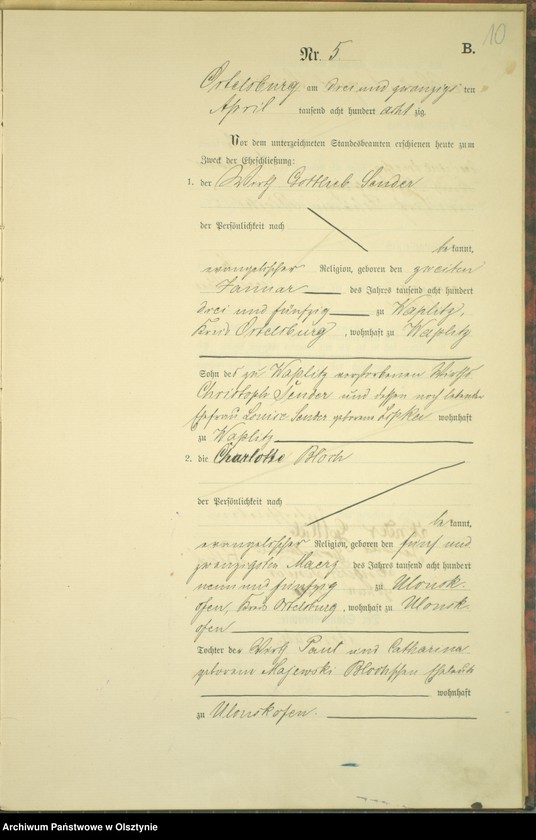 10
Nr. 5 B.
Ortelsburg am drei und zwanzigs ten
April tausend acht hundert acht zig.
Vor dem unterzeichneten Standesbeamten erschienen heute zum
Zweck der Eheschließung:
1. der Wirth Gottlieb Sender
der Persönlichkeit nach
be kannt,
evangelischer Religion, geboren den zweiten
Januar des Jahres tausend acht hundert
drei und fünfzig zu Waplitz,
Kreis Ortelsburg, wohnhaft zu Waplitz
Sohn des zu Waplitz verstorbenen Wirths
Christoph Sender und dessen noch lebende
Ehefrau Louise Sender geborene wohnhaft
zu Waplitz
2. die Charlotte Bloch
der Persönlichkeit nach
be kannt,
evangelischer Religion, geboren den fünf und
zwanzigsten Maerz des Jahres tausend acht hundert
neun und fünfzig zu Ulonsk-
ofen, Kreis Ortelsburg, wohnhaft zu Ulonsk-
ofen
Tochter der Wirth Paul und Catharina
geborene Majewski Bloch'schen Eheleute
wohnhaft
zu Ulonskofen.
Archiwum Państwowe w Olsztynie